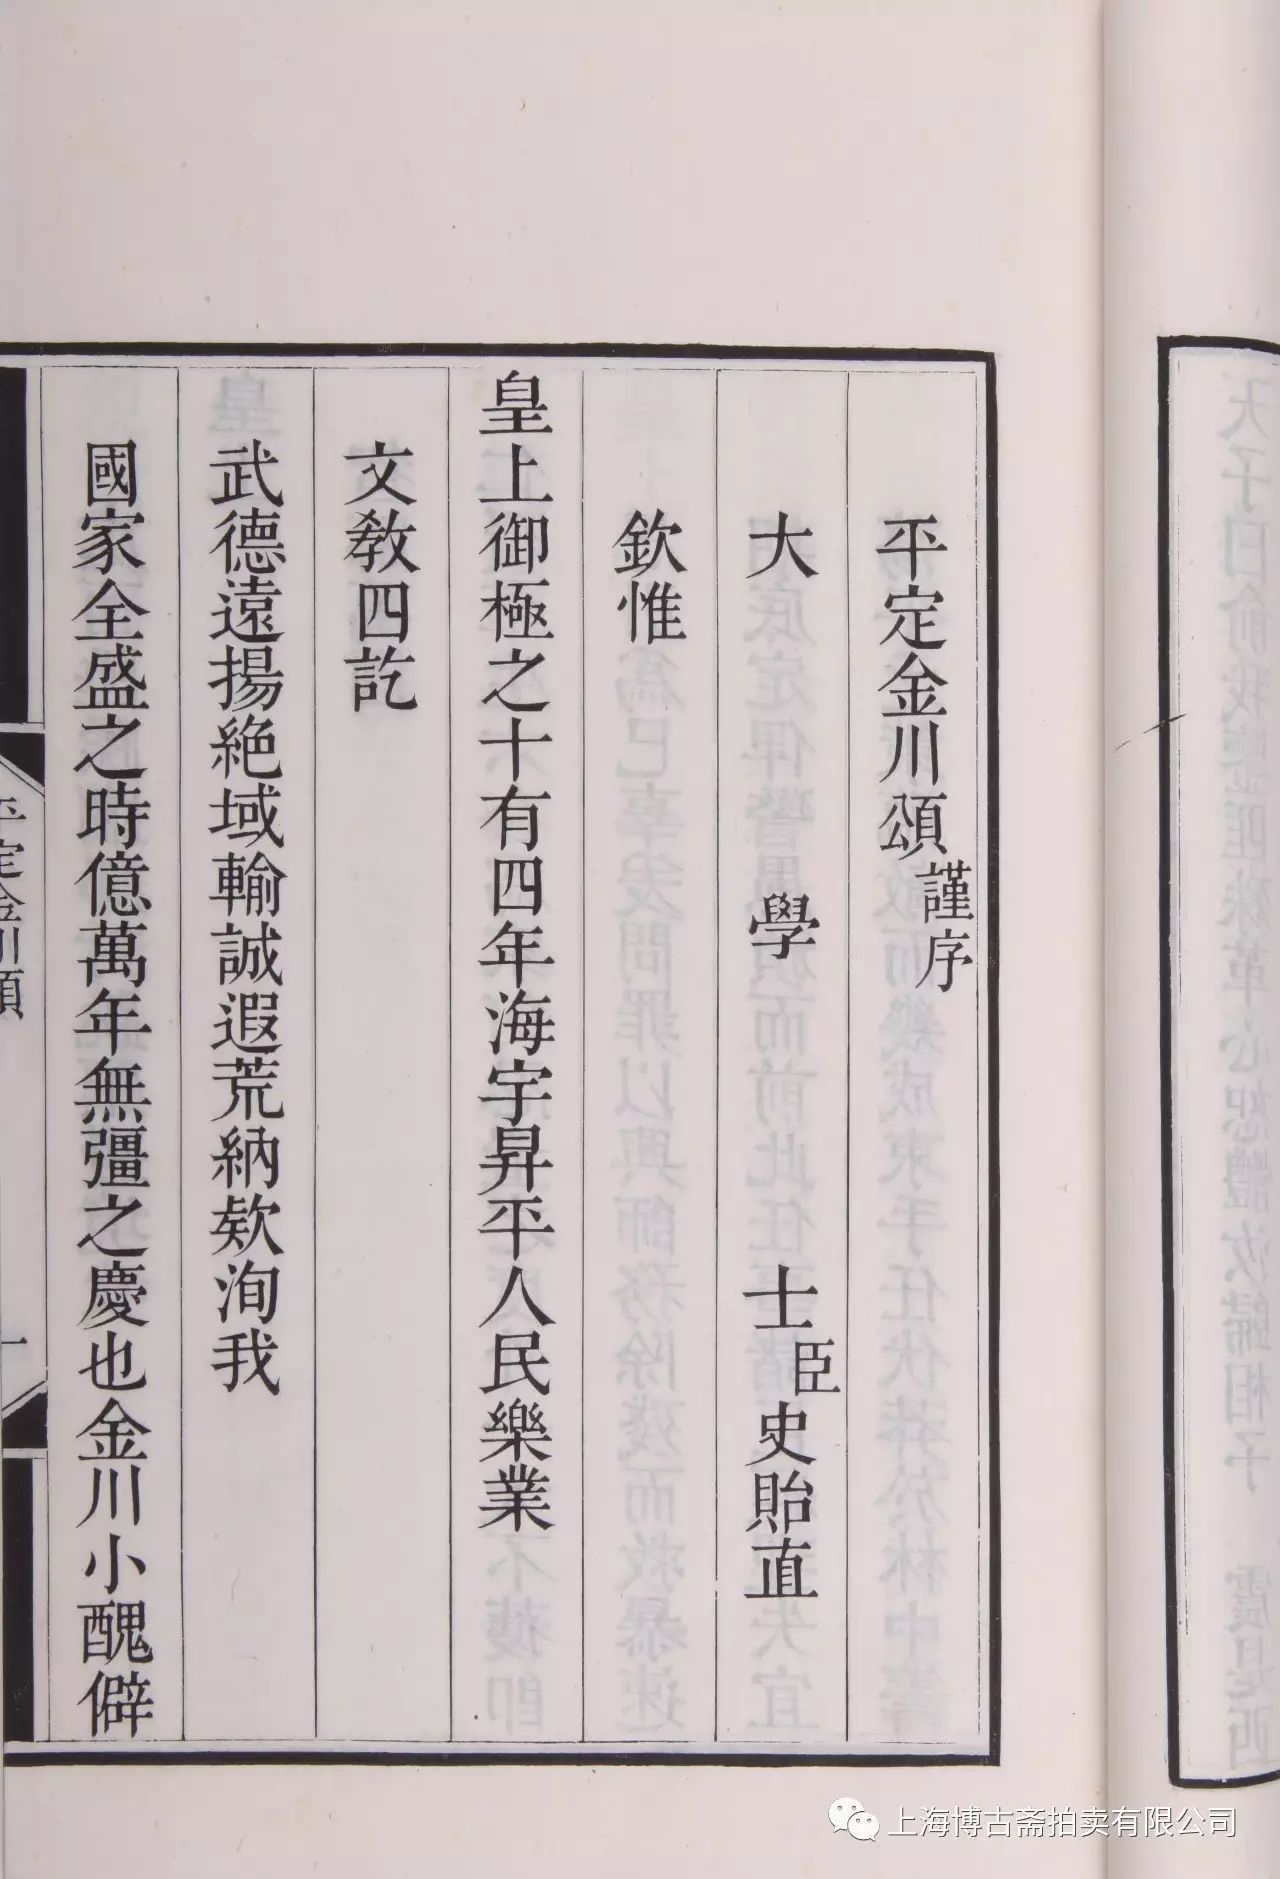 平定金川頌謹序
大學士臣史貽直
欽惟
皇上御極之十有四年海宇昇平人民樂業
文教四訖
武德遠揚絕域輸誠遐荒納欵洵我
國家全盛之時億萬年無彊之慶也金川小醜僻
平定金川頌
一
上海博古斋拍卖有限公司